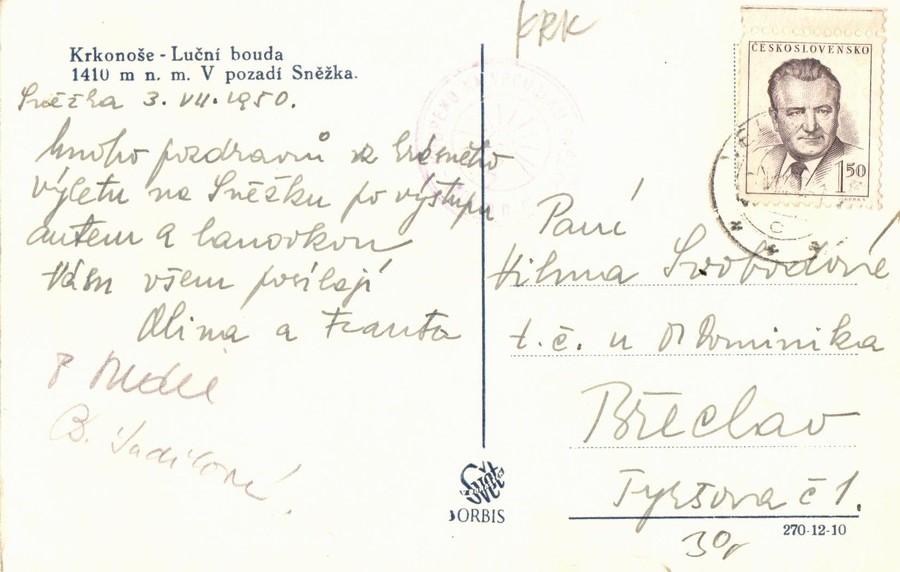 KRK
Krkonoše - Luční bouda
1410 m n. m. V pozadí Sněžka.
Sněžka 3. VII. 1950.
Mnoho pozdravů z krásného
výletu na Sněžku po výstupu
autem a lanovkou
Vám všem posílají
Olina a Franta
ČESKOSLOVENSKO
1.50
Paní
Vilma Svobodové
t. č. u Dominika
Břeclav
Tyršova č 1.
Svět
ORBIS
270-12-10
30,